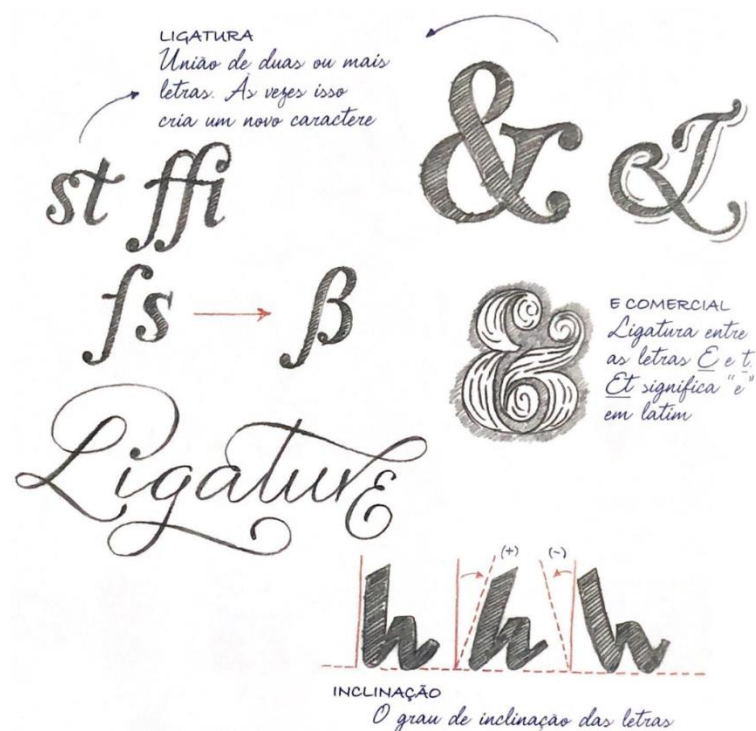 LIGATURA
União de duas ou mais
letras. Às vezes isso
cria um novo caractere
st ffi
&
&
ſs → ß
&
E COMERCIAL
Ligatura entre
as letras E e t.
Et significa "e"
em latim
Ligature
(+) (-)
h h h
INCLINAÇÃO
O grau de inclinação das letras